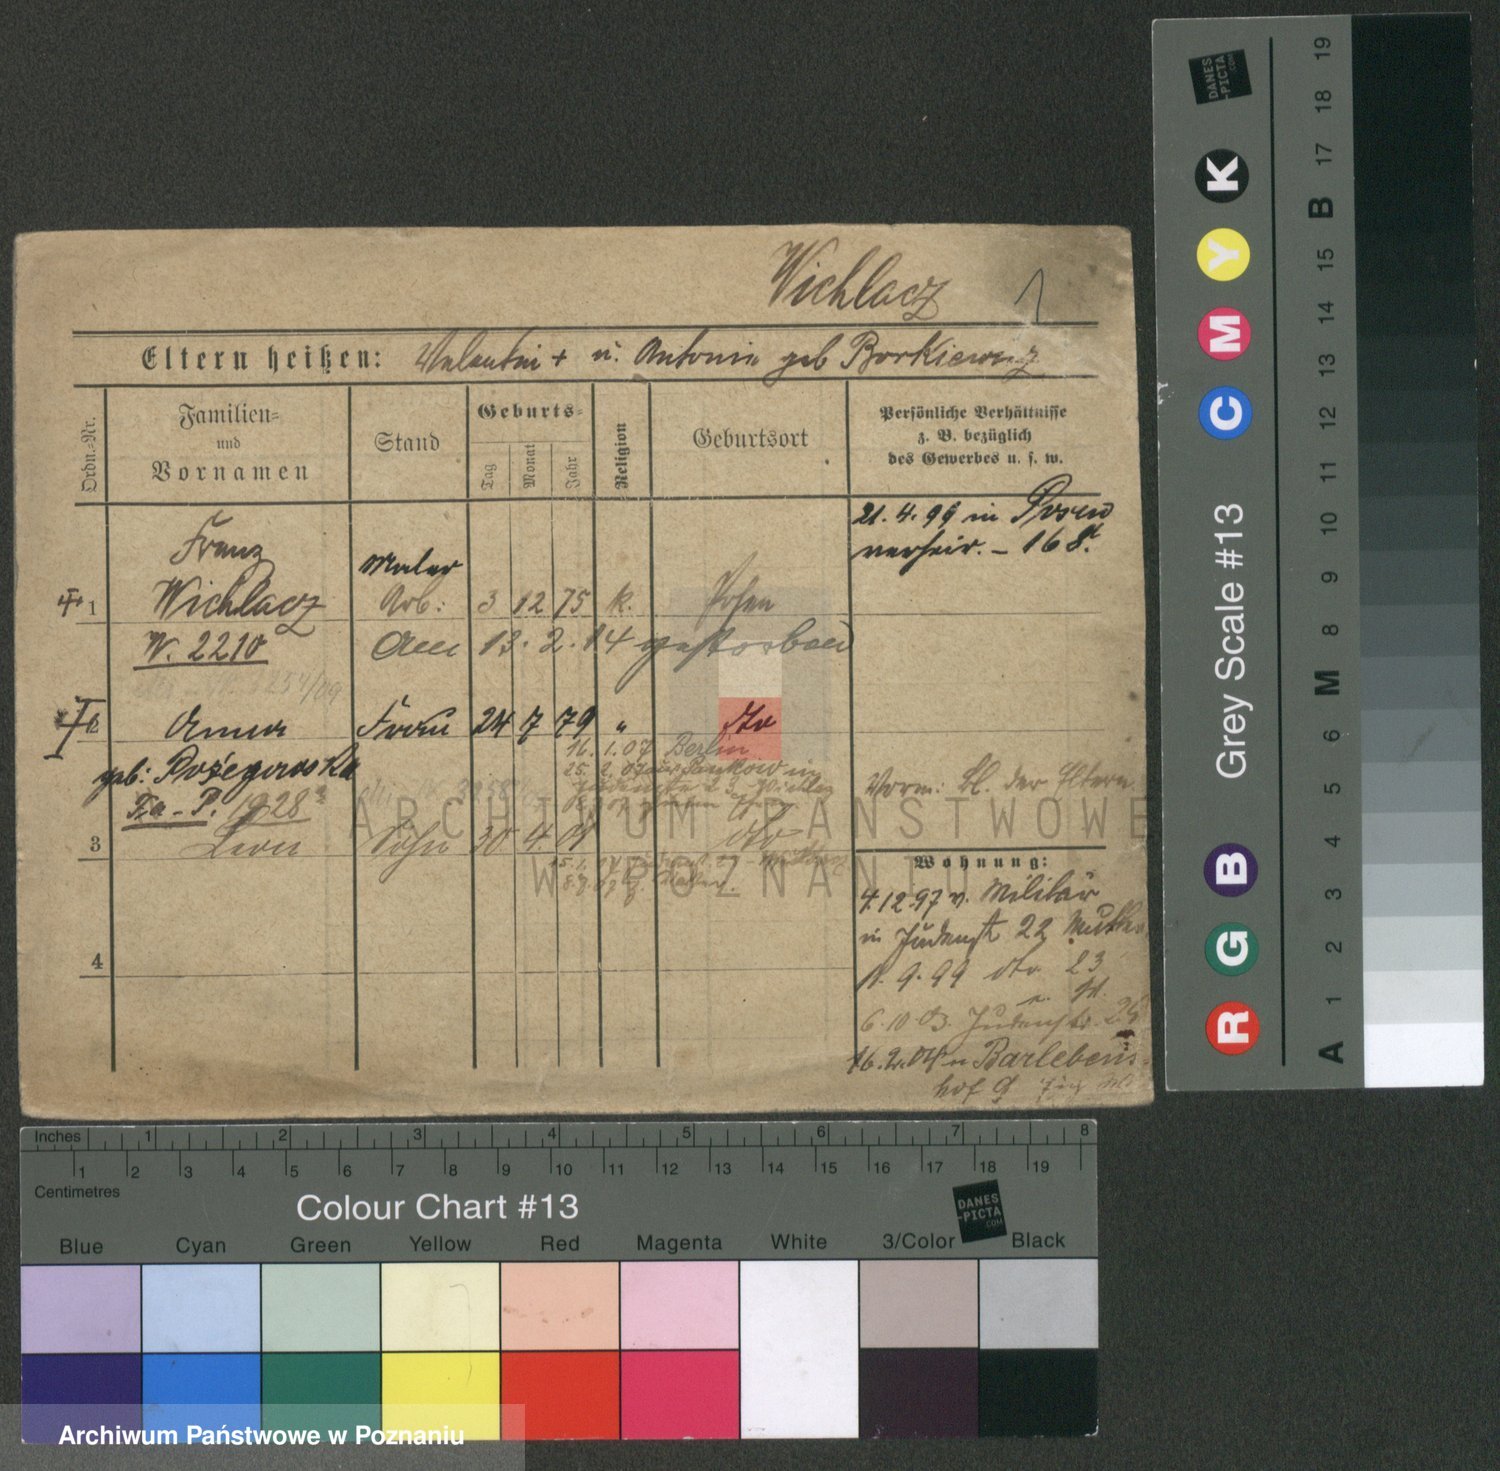 Wichlacz
1
Eltern heißen: Valentin + u. Antonie geb Borkiewicz
Ordn.-Nr.
Familien-
und
Vornamen
Stand
Geburts-
Tag
Monat
Jahr
Religion
Geburtsort
Persönliche Verhältnisse
z. B. bezüglich
des Gewerbes u. s. w.
21. 4. 99 in Posen
verheir. – 168.
Franz
Maler
1 Wichlacz Arb: 3 12 75 k. Posen
W. 2210 Am 13. 2. 14 gestorben
2 Anna Frau 24 7 79 " dto
16. 1. 07 Berlin
geb: Pożegowska
25. 2. 07 Pankow
Fa - P. 1928
Vorm: Bl. der Eltern
3 Leon Sohn 30 4. 01 dto
Wohnung:
4.12.97 v. Militär
in Judenst 22 Mutter
11. 9. 99 dto 23
6. 10. 03. Judenstr. 26
16. 2. 04 n Barlebens-
hof 9
4
ARCHIWUM PAŃSTWOWE
W POZNANIU
Inches 1 2 3 4 5 6 7 8
1 2 3 4 5 6 7 8 9 10 11 12 13 14 15 16 17 18 19
Centimetres
Colour Chart #13
DANES
-PICTA
.COM
Blue Cyan Green Yellow Red Magenta White 3/Color Black
Archiwum Państwowe w Poznaniu
DANES
-PICTA
.COM
Grey Scale #13
R G B C M Y K
A 1 2 3 4 5 6 M 8 9 10 11 12 13 14 15 B 17 18 19